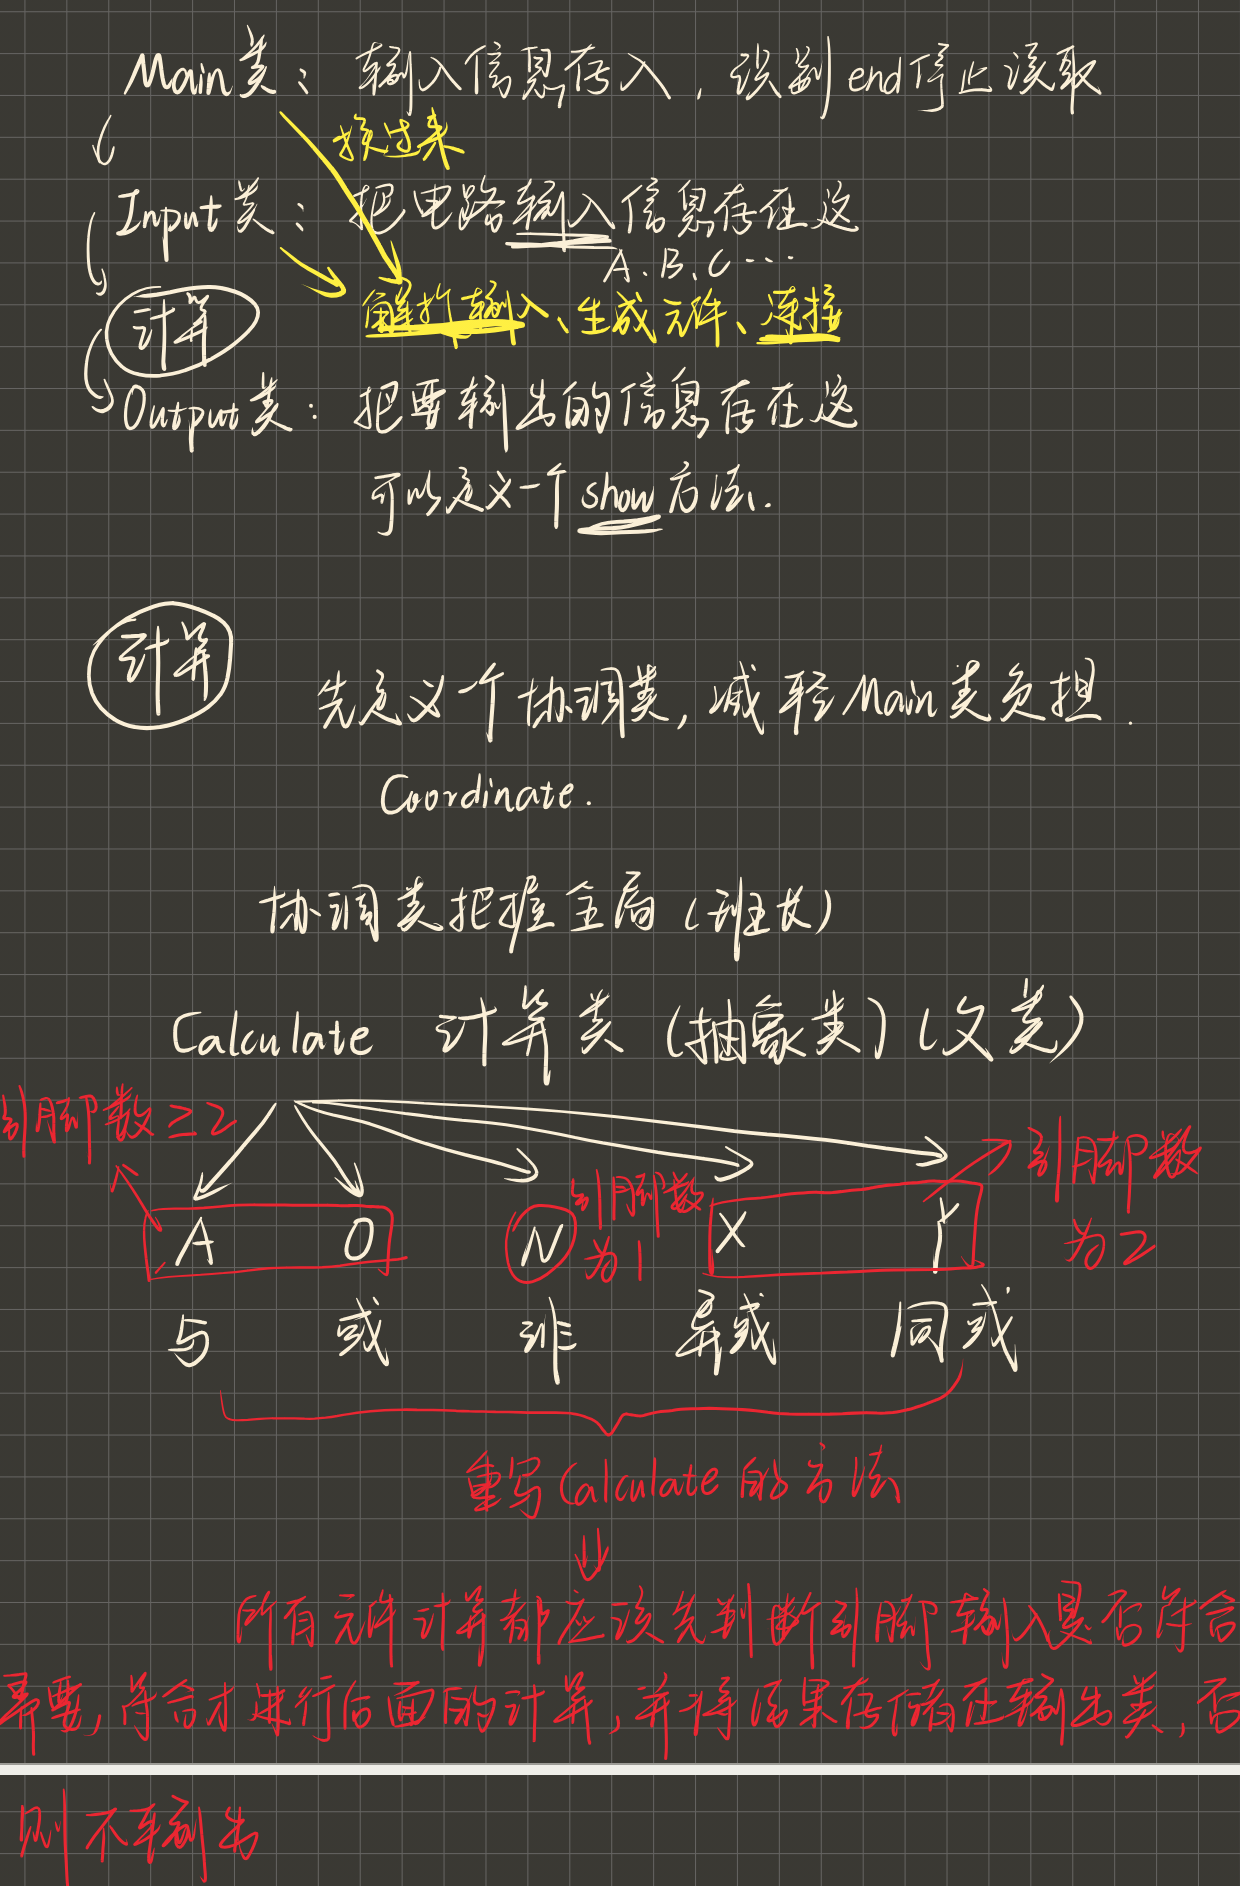 Main类：输入信息存入，识别end停止读取
换过来
Input类：把电路输入信息存在这
A、B、C…
解析输入、生成元件、连接
计算
Output类：把要输出的信息存在这
可以定义一个show方法.
计算
先定义一个协调类，减轻Main类负担.
Coordinate.
协调类把握全局（班长）
Calculate 计算类（抽象类）（父类）
引脚数≥2
引脚数为1
引脚数为2
A O N X Y
与 或 非 异或 同或
重写Calculate的方法
所有元件计算都应该先判断引脚输入是否符合
需要，符合才进行后面的计算，并将结果存储在输出类，否
则不输出